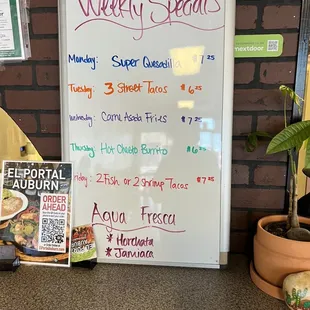 Weekly Specials
Monday: Super Quesadilla $7.25
Tuesday: 3 Street Tacos $6
Wednesday: Carne Asada Fries $7
Thursday: Hot Cheeto Burrito $6
Friday: 2 Fish or 2 shrimp Tacos $7
Agua Fresca
* Horchata
* Jamiaca
nextdoor
EL PORTAL
AUBURN
ORDER
AHEAD